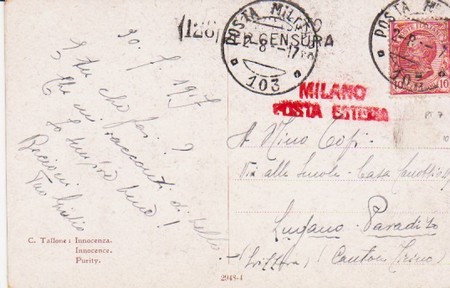 (126)
POSTA MILANO
2-8-17
103
CENSURA
POSTA MI
2-8-
103
10
MILANO
POSTA ESTERA
30. 7. 1917
E tu che fai?
Che mi racconti di bello
Io sto bene!
Bacioni
Tuo Giulio
A Nino
Via alle Scuole - Casa
Lugano - Paradiso
(Svizzera) (Canton Ticino)
C. Tallone: Innocenza.
Innocence.
Purity.
2948-1